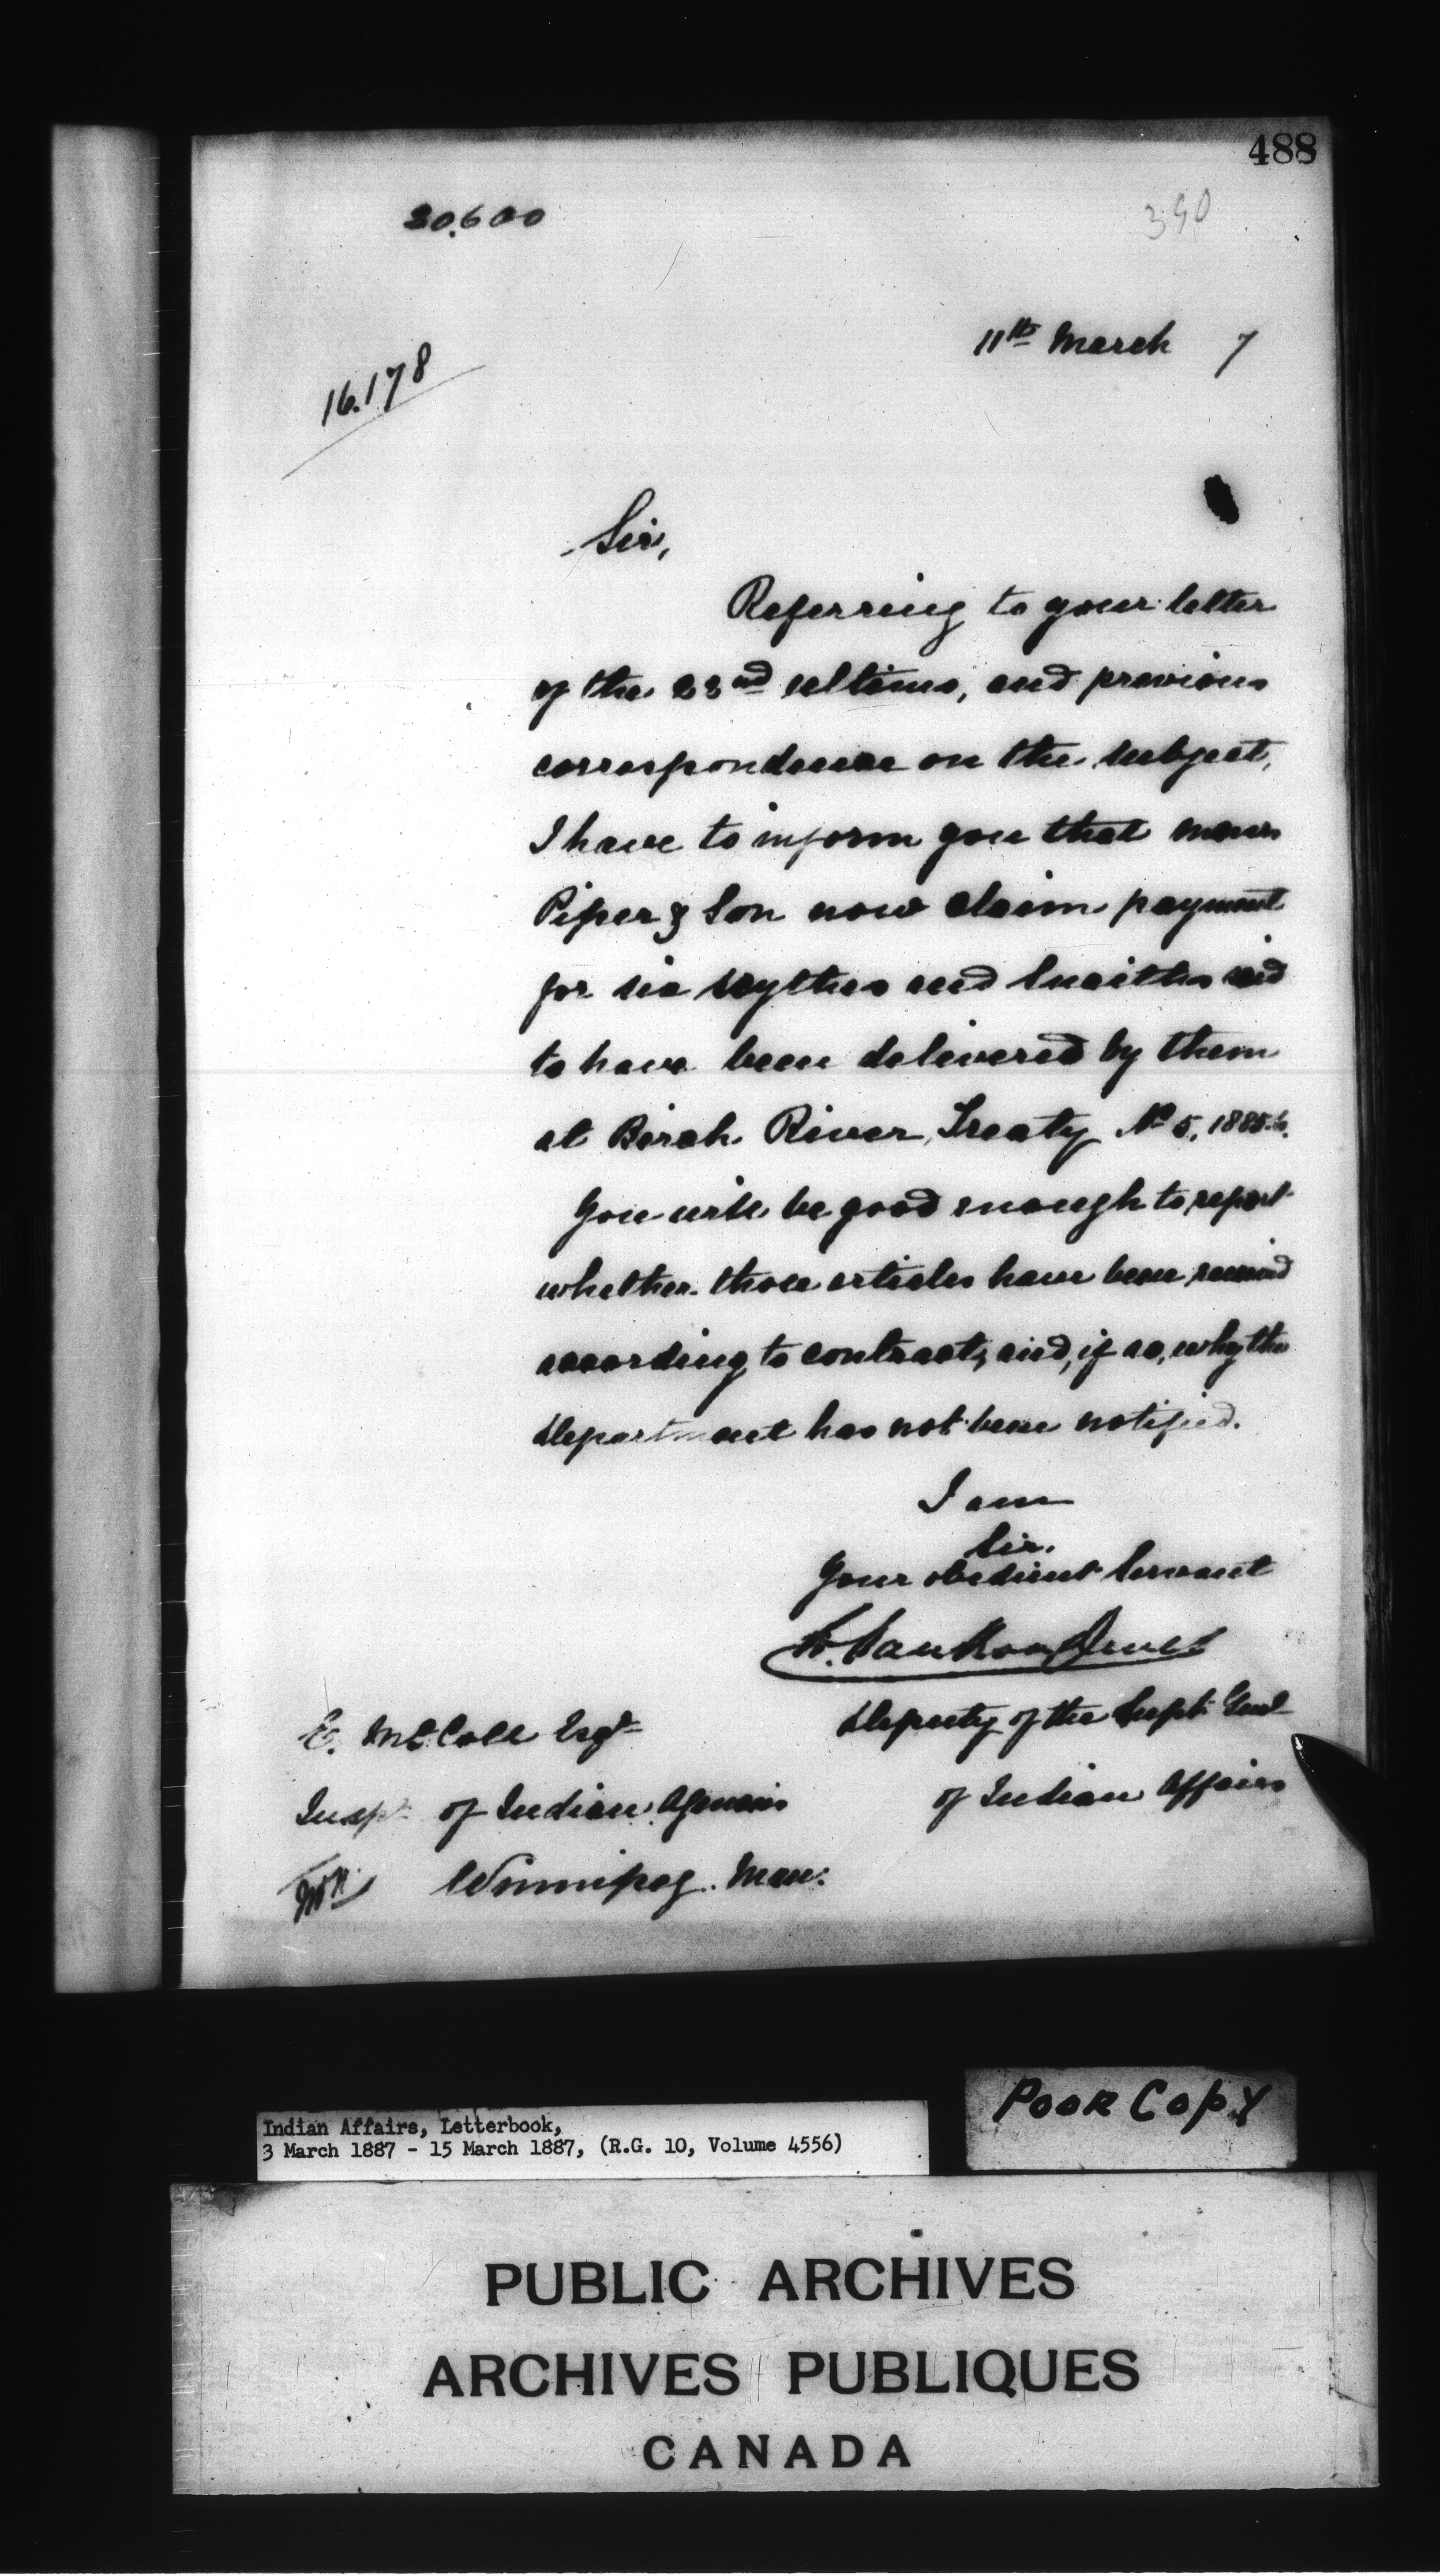 488
30.600
390
11th March 7
16.178
Sir,
Referring to your letter
of the 22nd ultimo, and previous
correspondence on the subject,
I have to inform you that Messrs
Piper & Son now claim payment
for six scythes and snaiths said
to have been delivered by them
at Birch River, Treaty No 5, 1885-6.
You will be good enough to report
whether those articles have been received
according to contract, and, if so, why the
Department has not been notified.
I am
Sir.
Your obedient Servant
L. VanKoughnet
Deputy of the Supt. Genl
of Indian Affairs
E. McColl Esqr
Insp. of Indian Agencies
Winnipeg. Man:
Indian Affairs, Letterbook,
3 March 1887 - 15 March 1887, (R.G. 10, Volume 4556)
POOR COPY
PUBLIC ARCHIVES
ARCHIVES PUBLIQUES
CANADA